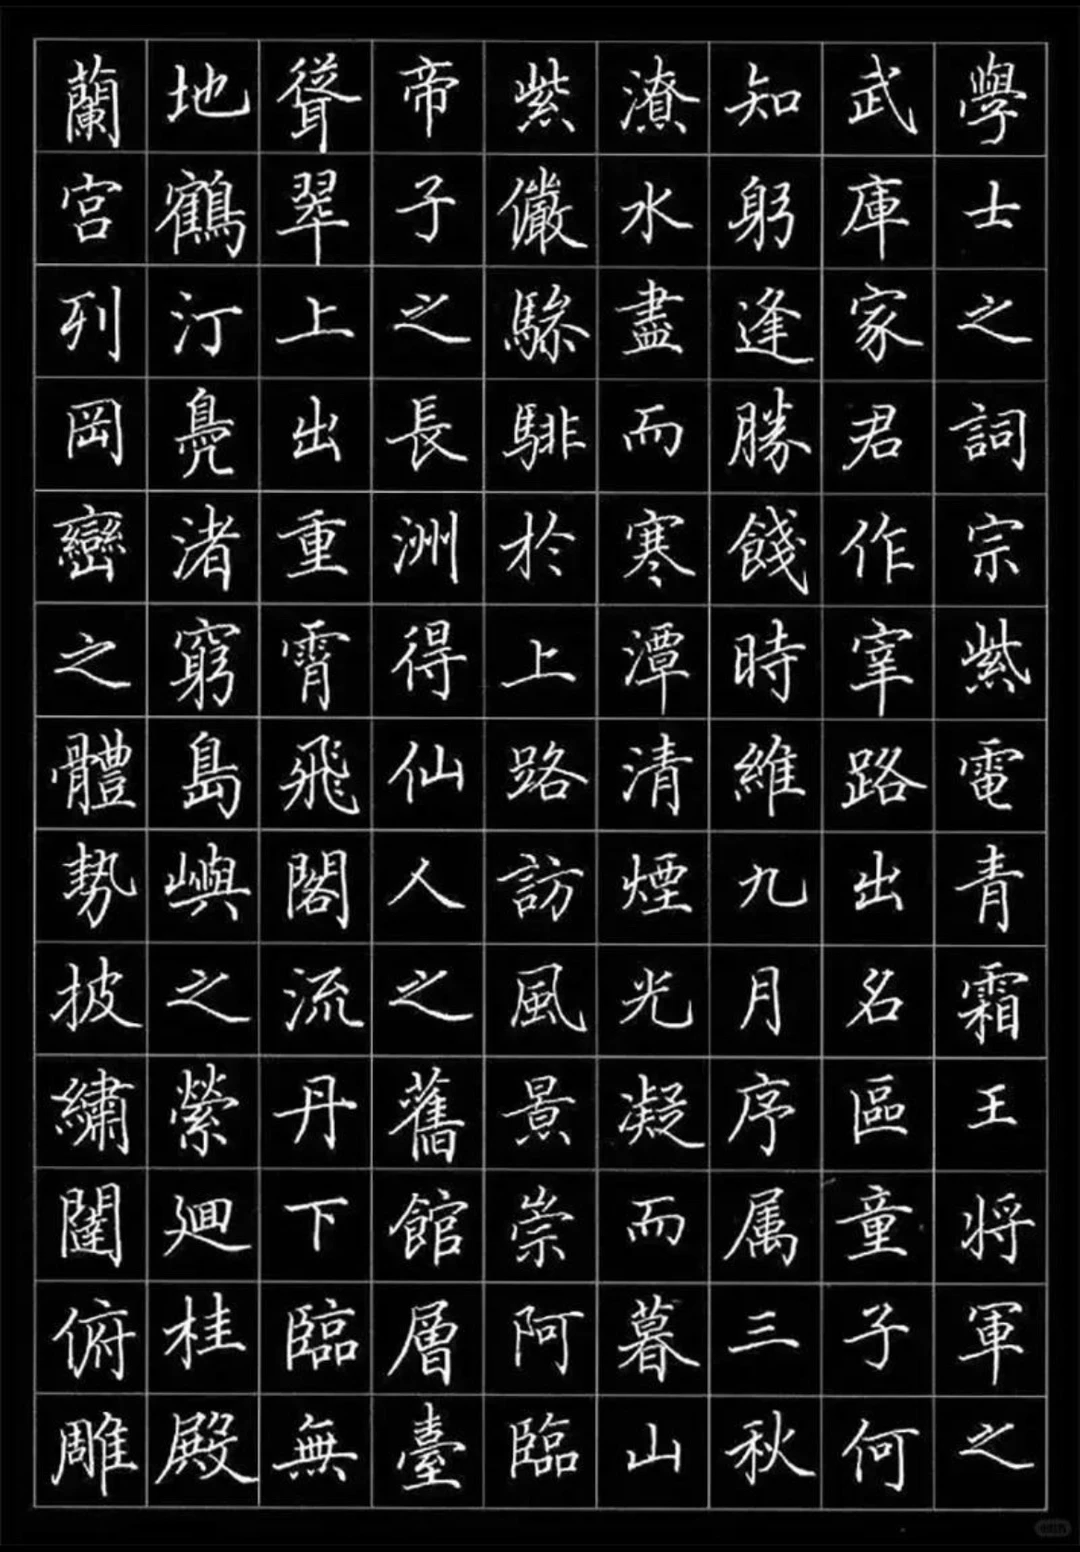 學士之詞宗紫電青霜王將軍之
武庫家君作宰路出名區童子何
知躬逢勝餞時維九月序属三秋
潦水盡而寒潭清煙光凝而暮山
紫儼驂騑於上路訪風景崇阿臨
帝子之長洲得仙人之舊館層臺
聳翠上出重霄飛閣流丹下臨無
地鶴汀鳧渚窮島嶼之縈廻桂殿
蘭宮列岡巒之體勢披繡闥俯雕